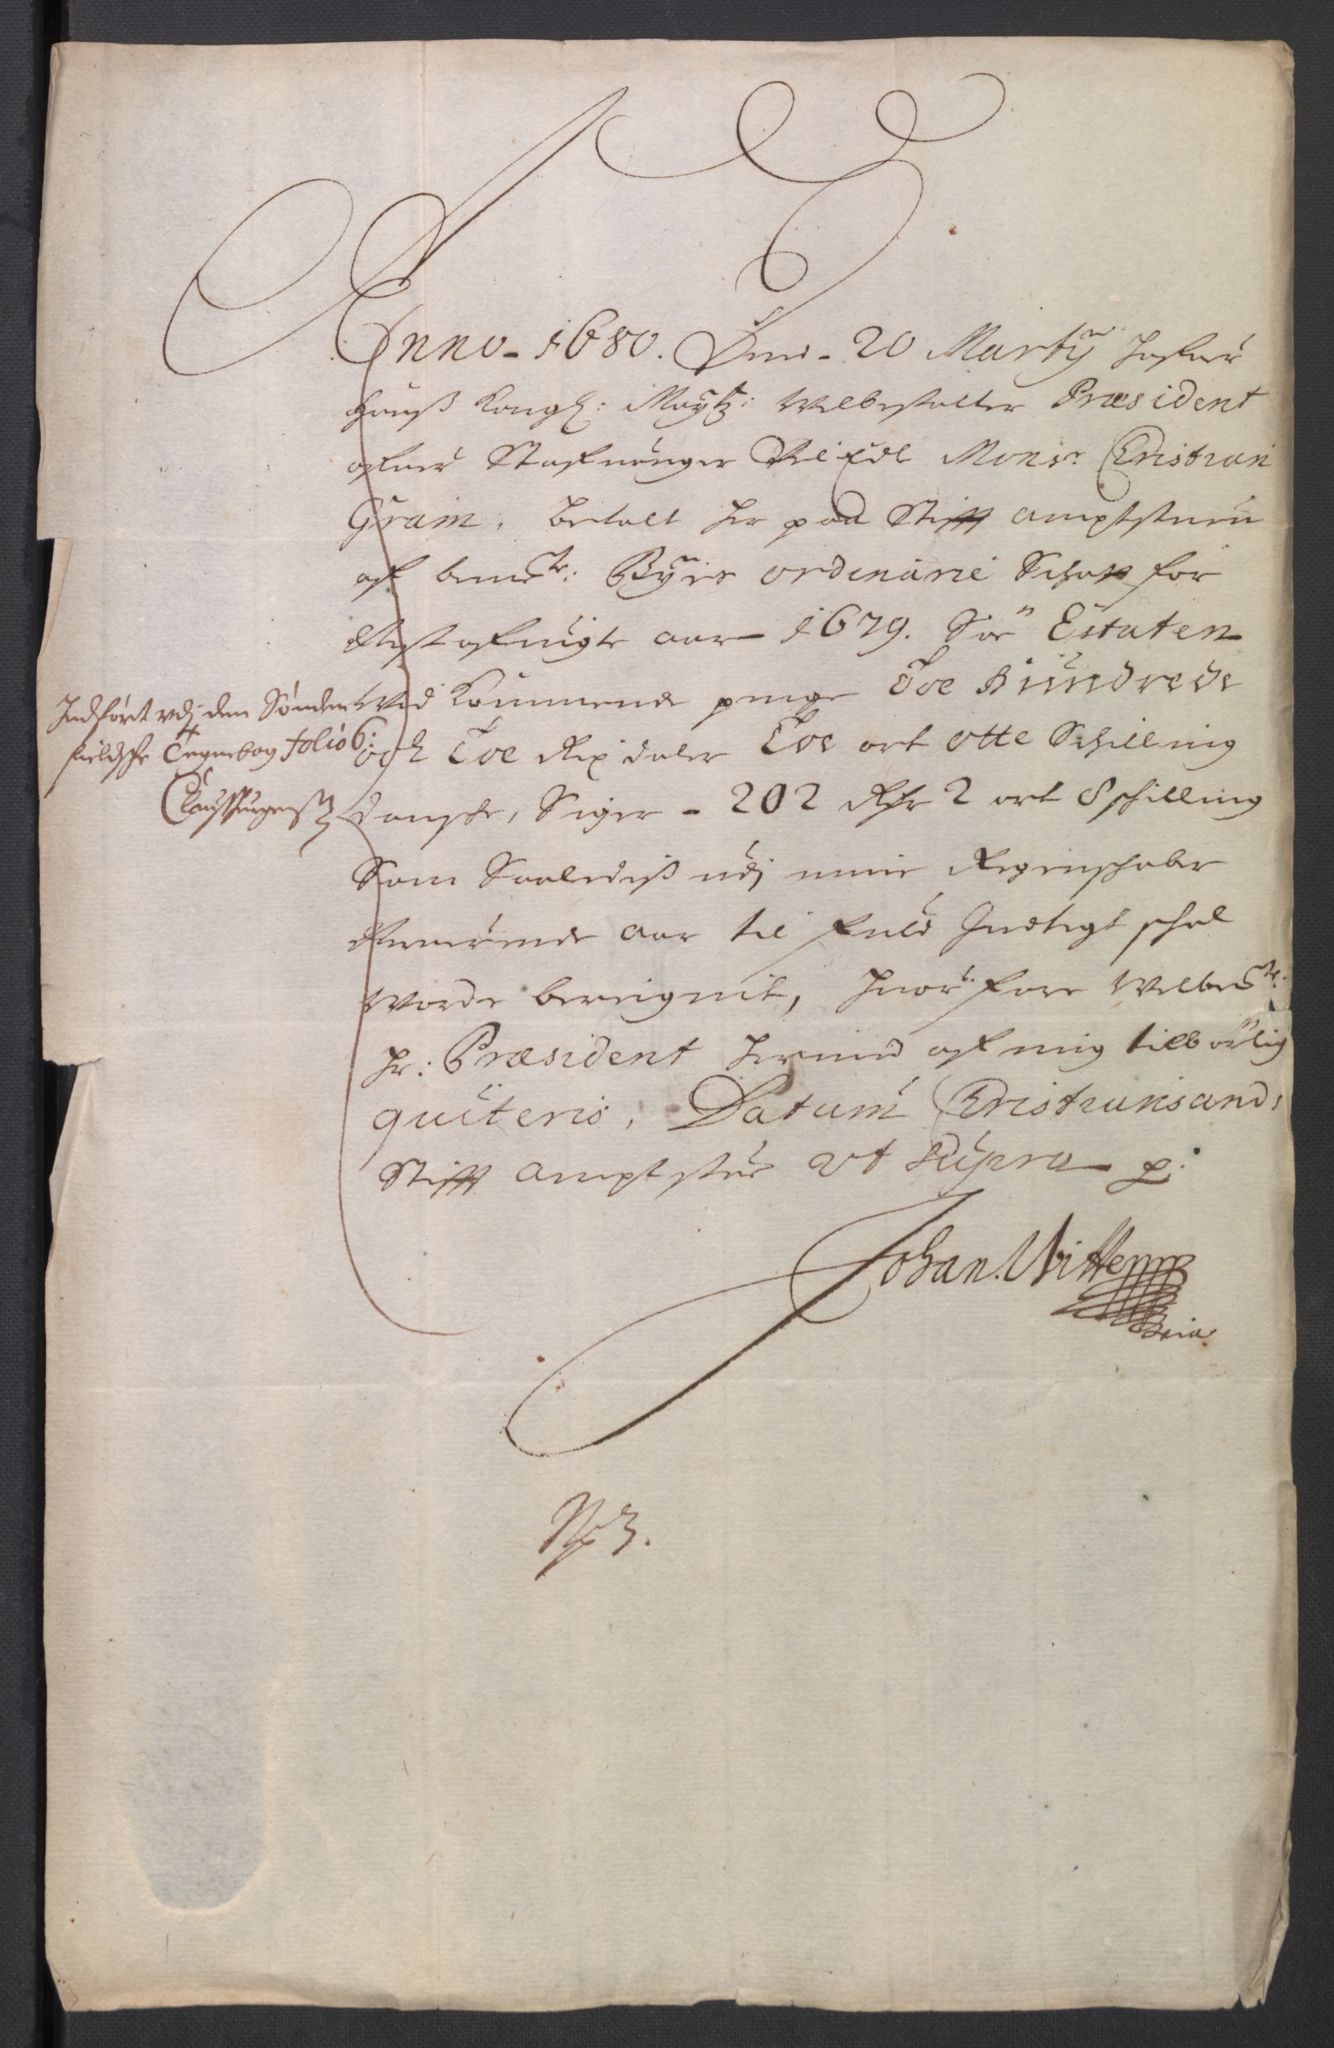 Anno 1680. Den 20 Martÿ Hafuer
Hanß Kongl: Maytz: Welbestalter Præsident
ofuer Stafuanger Vel Edl Monsr Christian
Gram, betalt her paa Stifft amptstuen
af bemte: Byes ordinarie Schatt for
Nest afuigte aar 1679. Som Estaten
Ved kommende penge Toe Hundrede
och Toe Rix daler Toe ort otte Schilling
danske, Siger - 202 Rdr 2 ort 8 schilling
Som Saaledeß udj mine Regenschaber
Neruerende aar til fuld Indtegt schal
Worde bereignit, Huor fore Welbemte:
Hr: Præsident Hermed af mig tilbørlig
quiteris, Datum Christiansand,
Stifft amptstue Vt Supra p:
Johan. Witten
Indført vdj den Sønden
fieldske Tegnebog folio 6:
No 3.